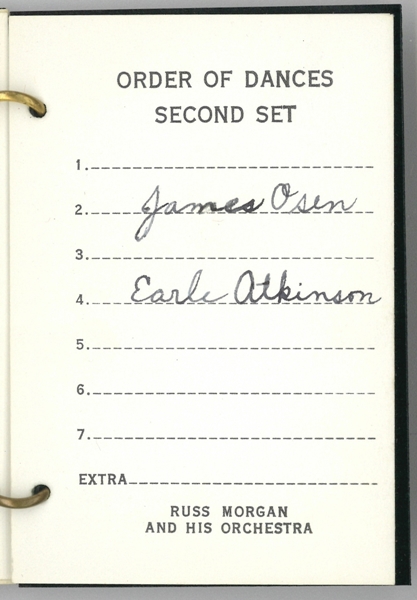 ORDER OF DANCES
SECOND SET
1.
2. James Osen
3.
4. Earle Atkinson
5.
6.
7.
EXTRA
RUSS MORGAN
AND HIS ORCHESTRA